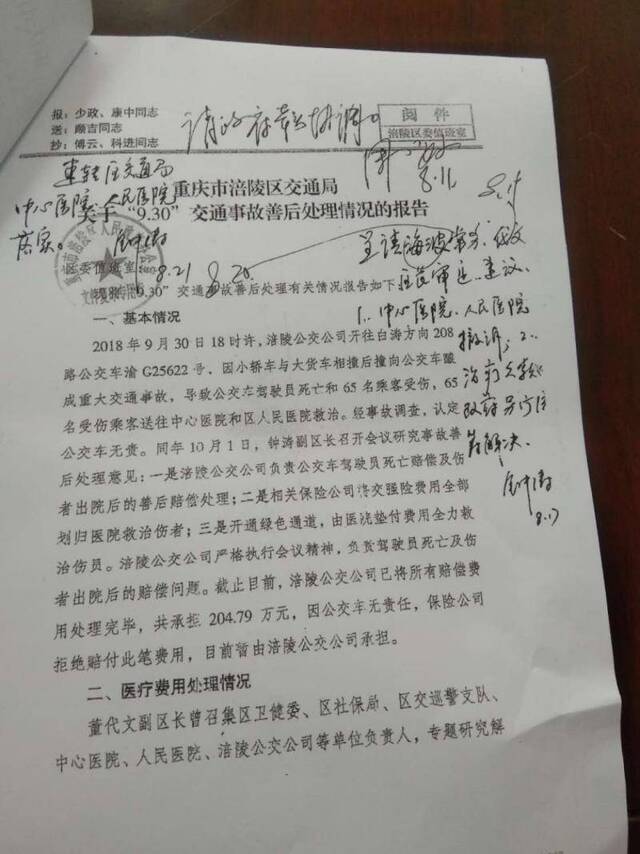 报：少政、康中同志
送：颜吉同志
抄：傅云、科进同志
阅 件
涪陵区委值班室
请政府牵头协调。
8.11
重庆市涪陵区交通局
中心医院、人民医院
关于“9.30”交通事故善后处理情况的报告
落实。
8.21
8.20
值班室
现将“9.30”交通事故善后处理有关情况报告如下
建议
1. 中心医院、人民医院
撤诉；2.
解决
8.17
一、基本情况
2018 年 9 月 30 日 18 时许，涪陵公交公司开往白涛方向 208
路公交车渝 G25622 号，因小轿车与大货车相撞后撞向公交车酿
成重大交通事故，导致公交车驾驶员死亡和 65 名乘客受伤，65
名受伤乘客送往中心医院和区人民医院救治。经事故调查，认定
公交车无责。同年 10 月 1 日，钟涛副区长召开会议研究事故善
后处理意见：一是涪陵公交公司负责公交车驾驶员死亡赔偿及伤
者出院后的善后赔偿处理；二是相关保险公司将交强险费用全部
划归医院救治伤者；三是开通绿色通道，由医院垫付费用全力救
治伤员。涪陵公交公司严格执行会议精神，负责驾驶员死亡及伤
者出院后的赔偿问题。截止目前，涪陵公交公司已将所有赔偿费
用处理完毕，共承担 204.79 万元，因公交车无责任，保险公司
拒绝赔付此笔费用，目前暂由涪陵公交公司承担。
二、医疗费用处理情况
董代文副区长曾召集区卫健委、区社保局、区交巡警支队、
中心医院、人民医院、涪陵公交公司等单位负责人，专题研究解